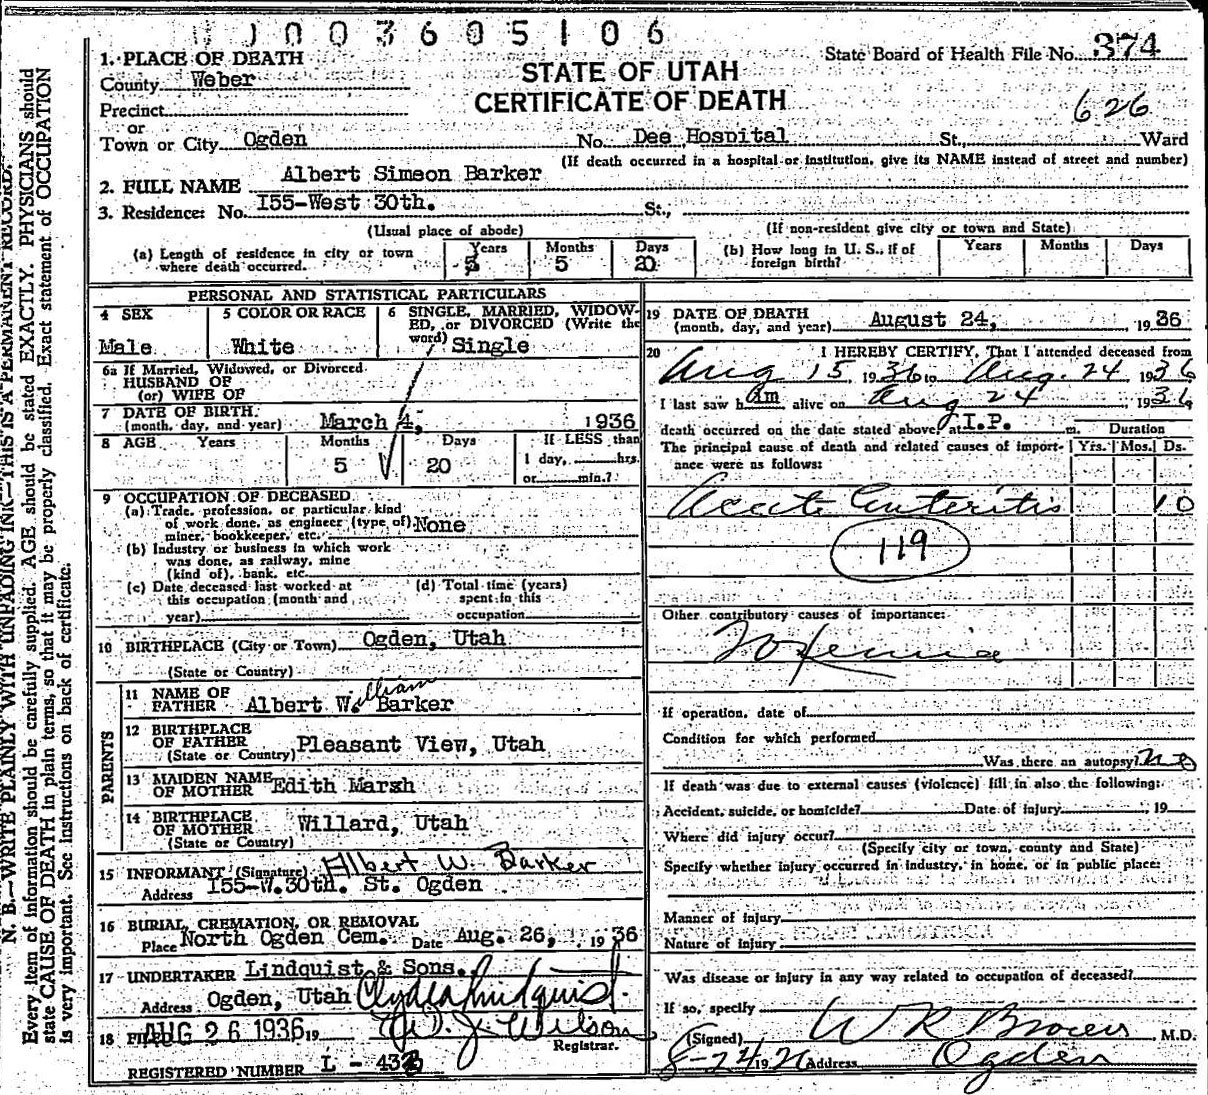 1003605106
State Board of Health File No. 374
1. PLACE OF DEATH
County Weber
STATE OF UTAH
CERTIFICATE OF DEATH
626
Precinct
or
Town or City Ogden No. Dee Hospital St., Ward
(If death occurred in a hospital or institution, give its NAME instead of street and number)
2. FULL NAME Albert Simeon Barker
3. Residence: No. I55-West 30th. St.,
(Usual place of abode) (If non-resident give city or town and State)
(a) Length of residence in city or town where death occurred. Years Months 5 Days 20
(b) How long in U. S., if of foreign birth? Years Months Days
PERSONAL AND STATISTICAL PARTICULARS
4 SEX Male
5 COLOR OR RACE White
6 SINGLE, MARRIED, WIDOWED, or DIVORCED (Write the word) Single
6a If Married, Widowed, or Divorced
HUSBAND OF
(or) WIFE OF
7 DATE OF BIRTH.
(month, day, and year) March 4, 1936
8 AGE Years Months 5 Days 20 If LESS than 1 day, hrs. or min.?
9 OCCUPATION OF DECEASED
(a) Trade, profession, or particular kind
of work done, as engineer (type of)
miner, bookkeeper, etc. None
(b) Industry or business in which work
was done, as railway, mine
(kind of), bank, etc.
(c) Date deceased last worked at
this occupation (month and
year)
(d) Total time (years)
spent in this
occupation
10 BIRTHPLACE (City or Town) Ogden, Utah
(State or Country)
PARENTS
11 NAME OF
FATHER Albert William Barker
12 BIRTHPLACE
OF FATHER
(State or Country) Pleasant View, Utah
13 MAIDEN NAME
OF MOTHER Edith Marsh
14 BIRTHPLACE
OF MOTHER Willard, Utah
(State or Country)
15 INFORMANT (Signature) Albert W. Barker
Address I55-W.30th. St. Ogden
16 BURIAL, CREMATION, OR REMOVAL
Place North Ogden Cem. Date Aug. 26, 1936
17 UNDERTAKER Lindquist & Sons.
Address Ogden, Utah Clyde Lindquist
18 FILED AUG 26 1936 19 W. J. Wilson
Registrar.
REGISTERED NUMBER L - 43
19 DATE OF DEATH
(month, day, and year) August 24, 1936
20 I HEREBY CERTIFY, That I attended deceased from
Aug 15, 1936 to Aug. 24 1936
I last saw him alive on Aug 24, 1936
death occurred on the date stated above, at I.P. m. Duration
The principal cause of death and related causes of importance were as follows: Yrs. Mos. Ds.
Acute Enteritis 10
119
Other contributory causes of importance:
Toxemia
If operation, date of
Condition for which performed
Was there an autopsy? No
If death was due to external causes (violence) fill in also the following:
Accident, suicide, or homicide? Date of injury, 19
Where did injury occur?
(Specify city or town, county and State)
Specify whether injury occurred in industry, in home, or in public place:
Manner of injury
Nature of injury
Was disease or injury in any way related to occupation of deceased?
If so, specify
(Signed) W R Brown, M.D.
8-24 19 Address Ogden
N. B.—WRITE PLAINLY WITH UNFADING INK—THIS IS A PERMANENT RECORD.
Every item of information should be carefully supplied. AGE should be stated EXACTLY. PHYSICIANS should
state CAUSE OF DEATH in plain terms, so that it may be properly classified. Exact statement of OCCUPATION
is very important. See instructions on back of certificate.